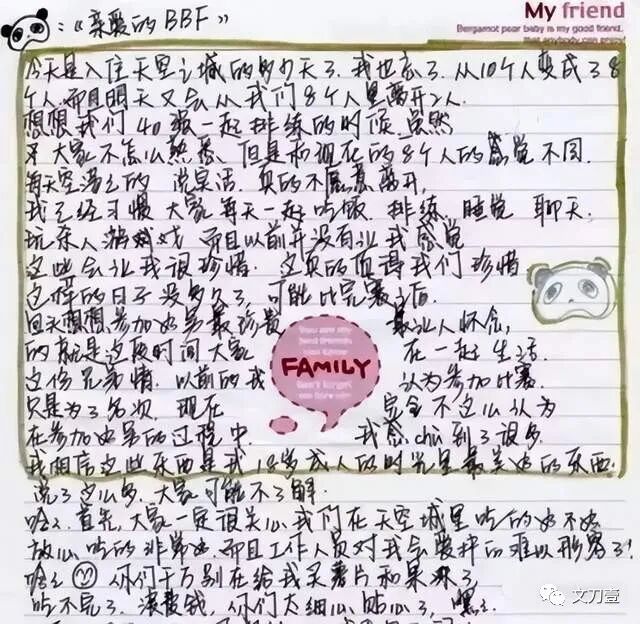 My friend
Bergamot pear baby is my good friend,
that anybody can enjoy
:《亲爱的BBF》
今天是入住天空之城的多少天了.我也忘了.从10个人变成了8
个人.而且明天又会从我们8个人里离开2人.
想想我们40强一起排练的时候 虽然
大家不怎么熟悉.但是和现在的8个人的感觉不同.
每天空荡荡的 说实话.真的不愿意离开.
我已经习惯大家每天一起吃饭.排练.睡觉 聊天.
玩杀人游戏 而且以前并没有让我感觉
这些会让我很珍惜.这真的值得我们珍惜
这样的日子没多久了,可能比完赛之后.
回头想想参加好男最珍贵 最让人怀念,
的就是这段时间大家 在一起生活.
这份兄弟情.以前的我 认为参加比赛
只是为了名次 现在 完全不这么认为
在参加好男的过程中. 我感chu到了很多.
我相信这些东西是我18岁成人的时光里最美好的东西.
说了这么多.大家可能不了解.
哈哈.首先,大家一定很关心我们在天空城里吃的好不好
放心吃的非常好.而且工作人员对我会照料的难以形容了!
哈哈 你们千万别在给我买薯片和果冻了
吃不完了.浪费钱,你们太细心贴心了,嘿嘿.
You are my
FAMILY
Don't forget
文刀壹